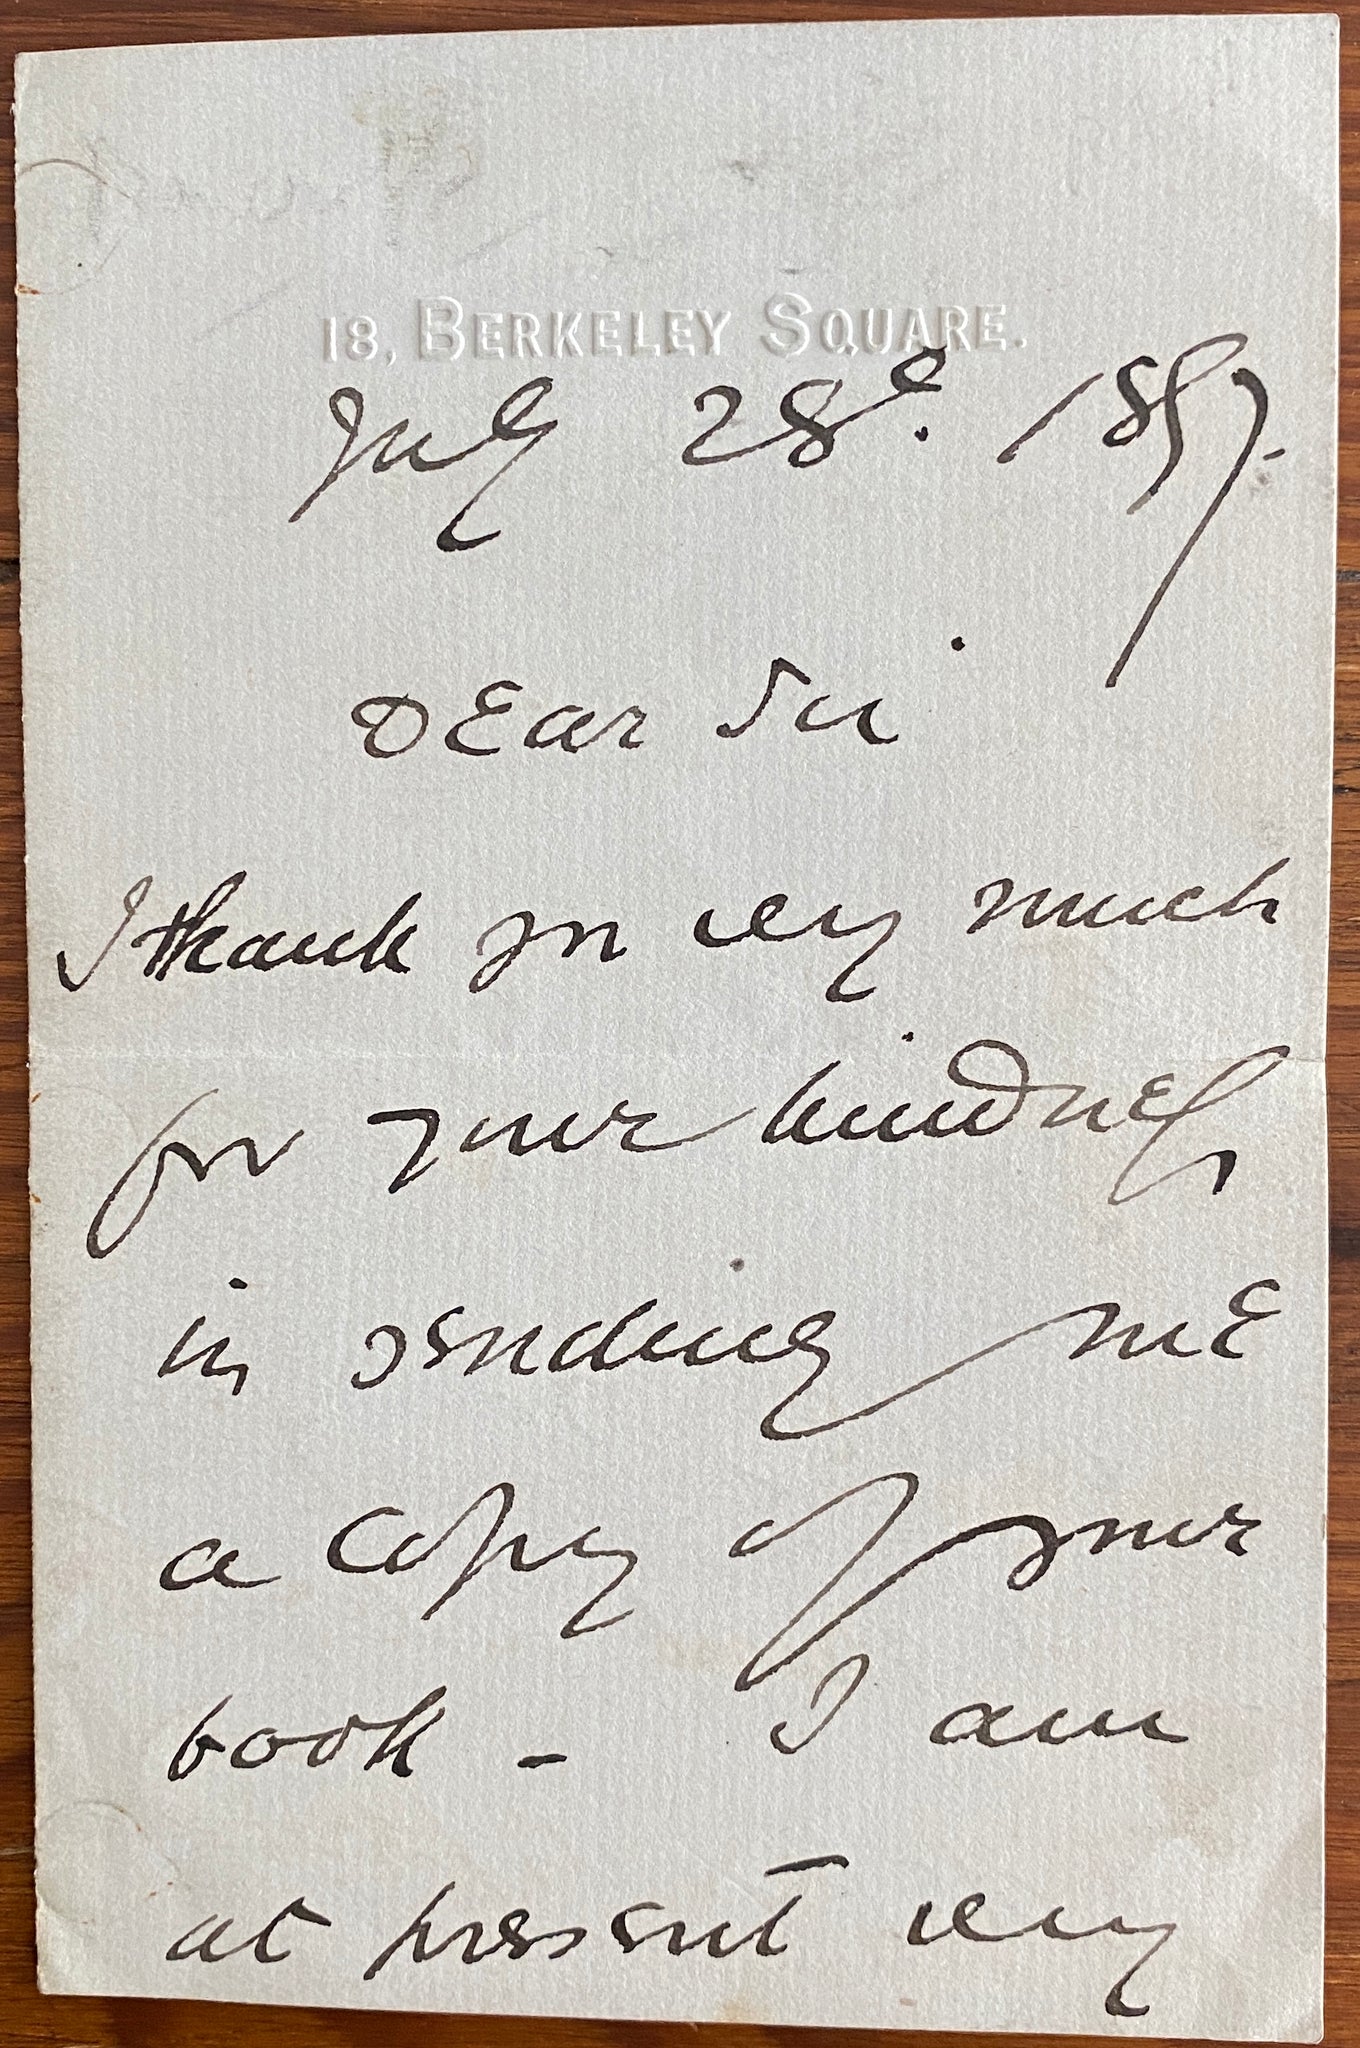 18, BERKELEY SQUARE.
July 28th. 1897.
Dear Sir
I thank you very much
for your kindness
in sending me
a copy of your
book - I am
at present very